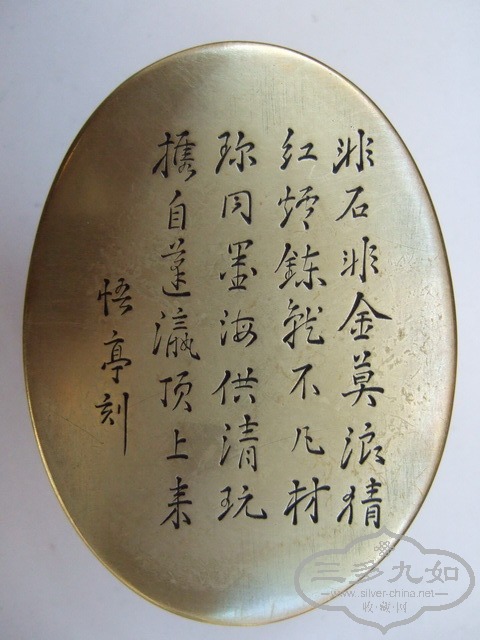 非石非金莫浪猜
红炉鍊就不凡材
珎同墨海供清玩
携自蓬瀛顶上来
悟亭刻
三多九如
www.silver-china.net
收·藏·网